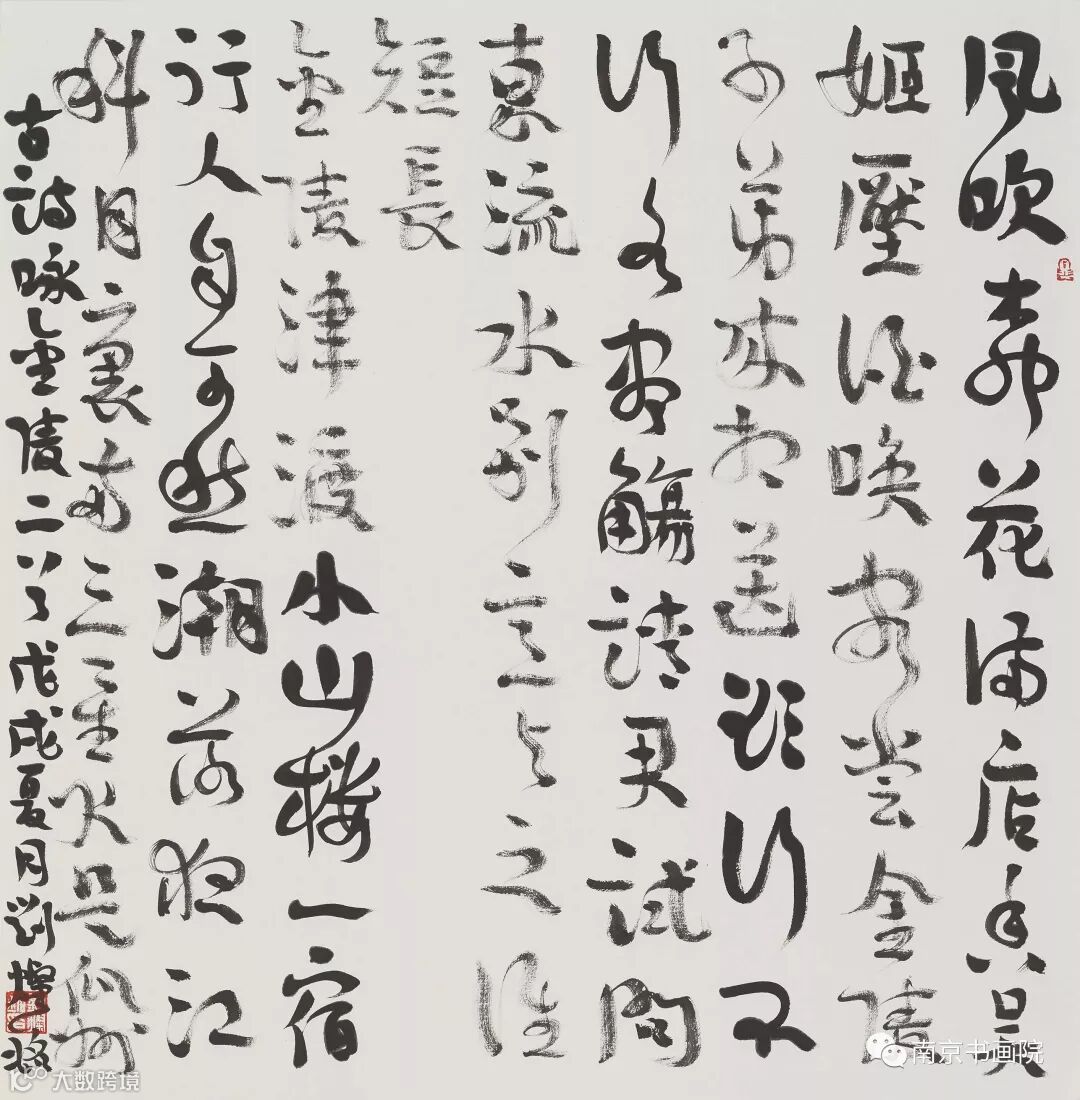 風吹柳花滿店香吳
姬壓酒喚客嘗金陵
子弟來相送欲行不
行各盡觴請君試問
東流水別意與之誰
短長
金陵津渡小山樓一宿
行人自可愁潮落夜江
斜月裏兩三星火是瓜州
古詩咏金陵二首戊戌夏月劉燦銘
南京书画院
大数跨境